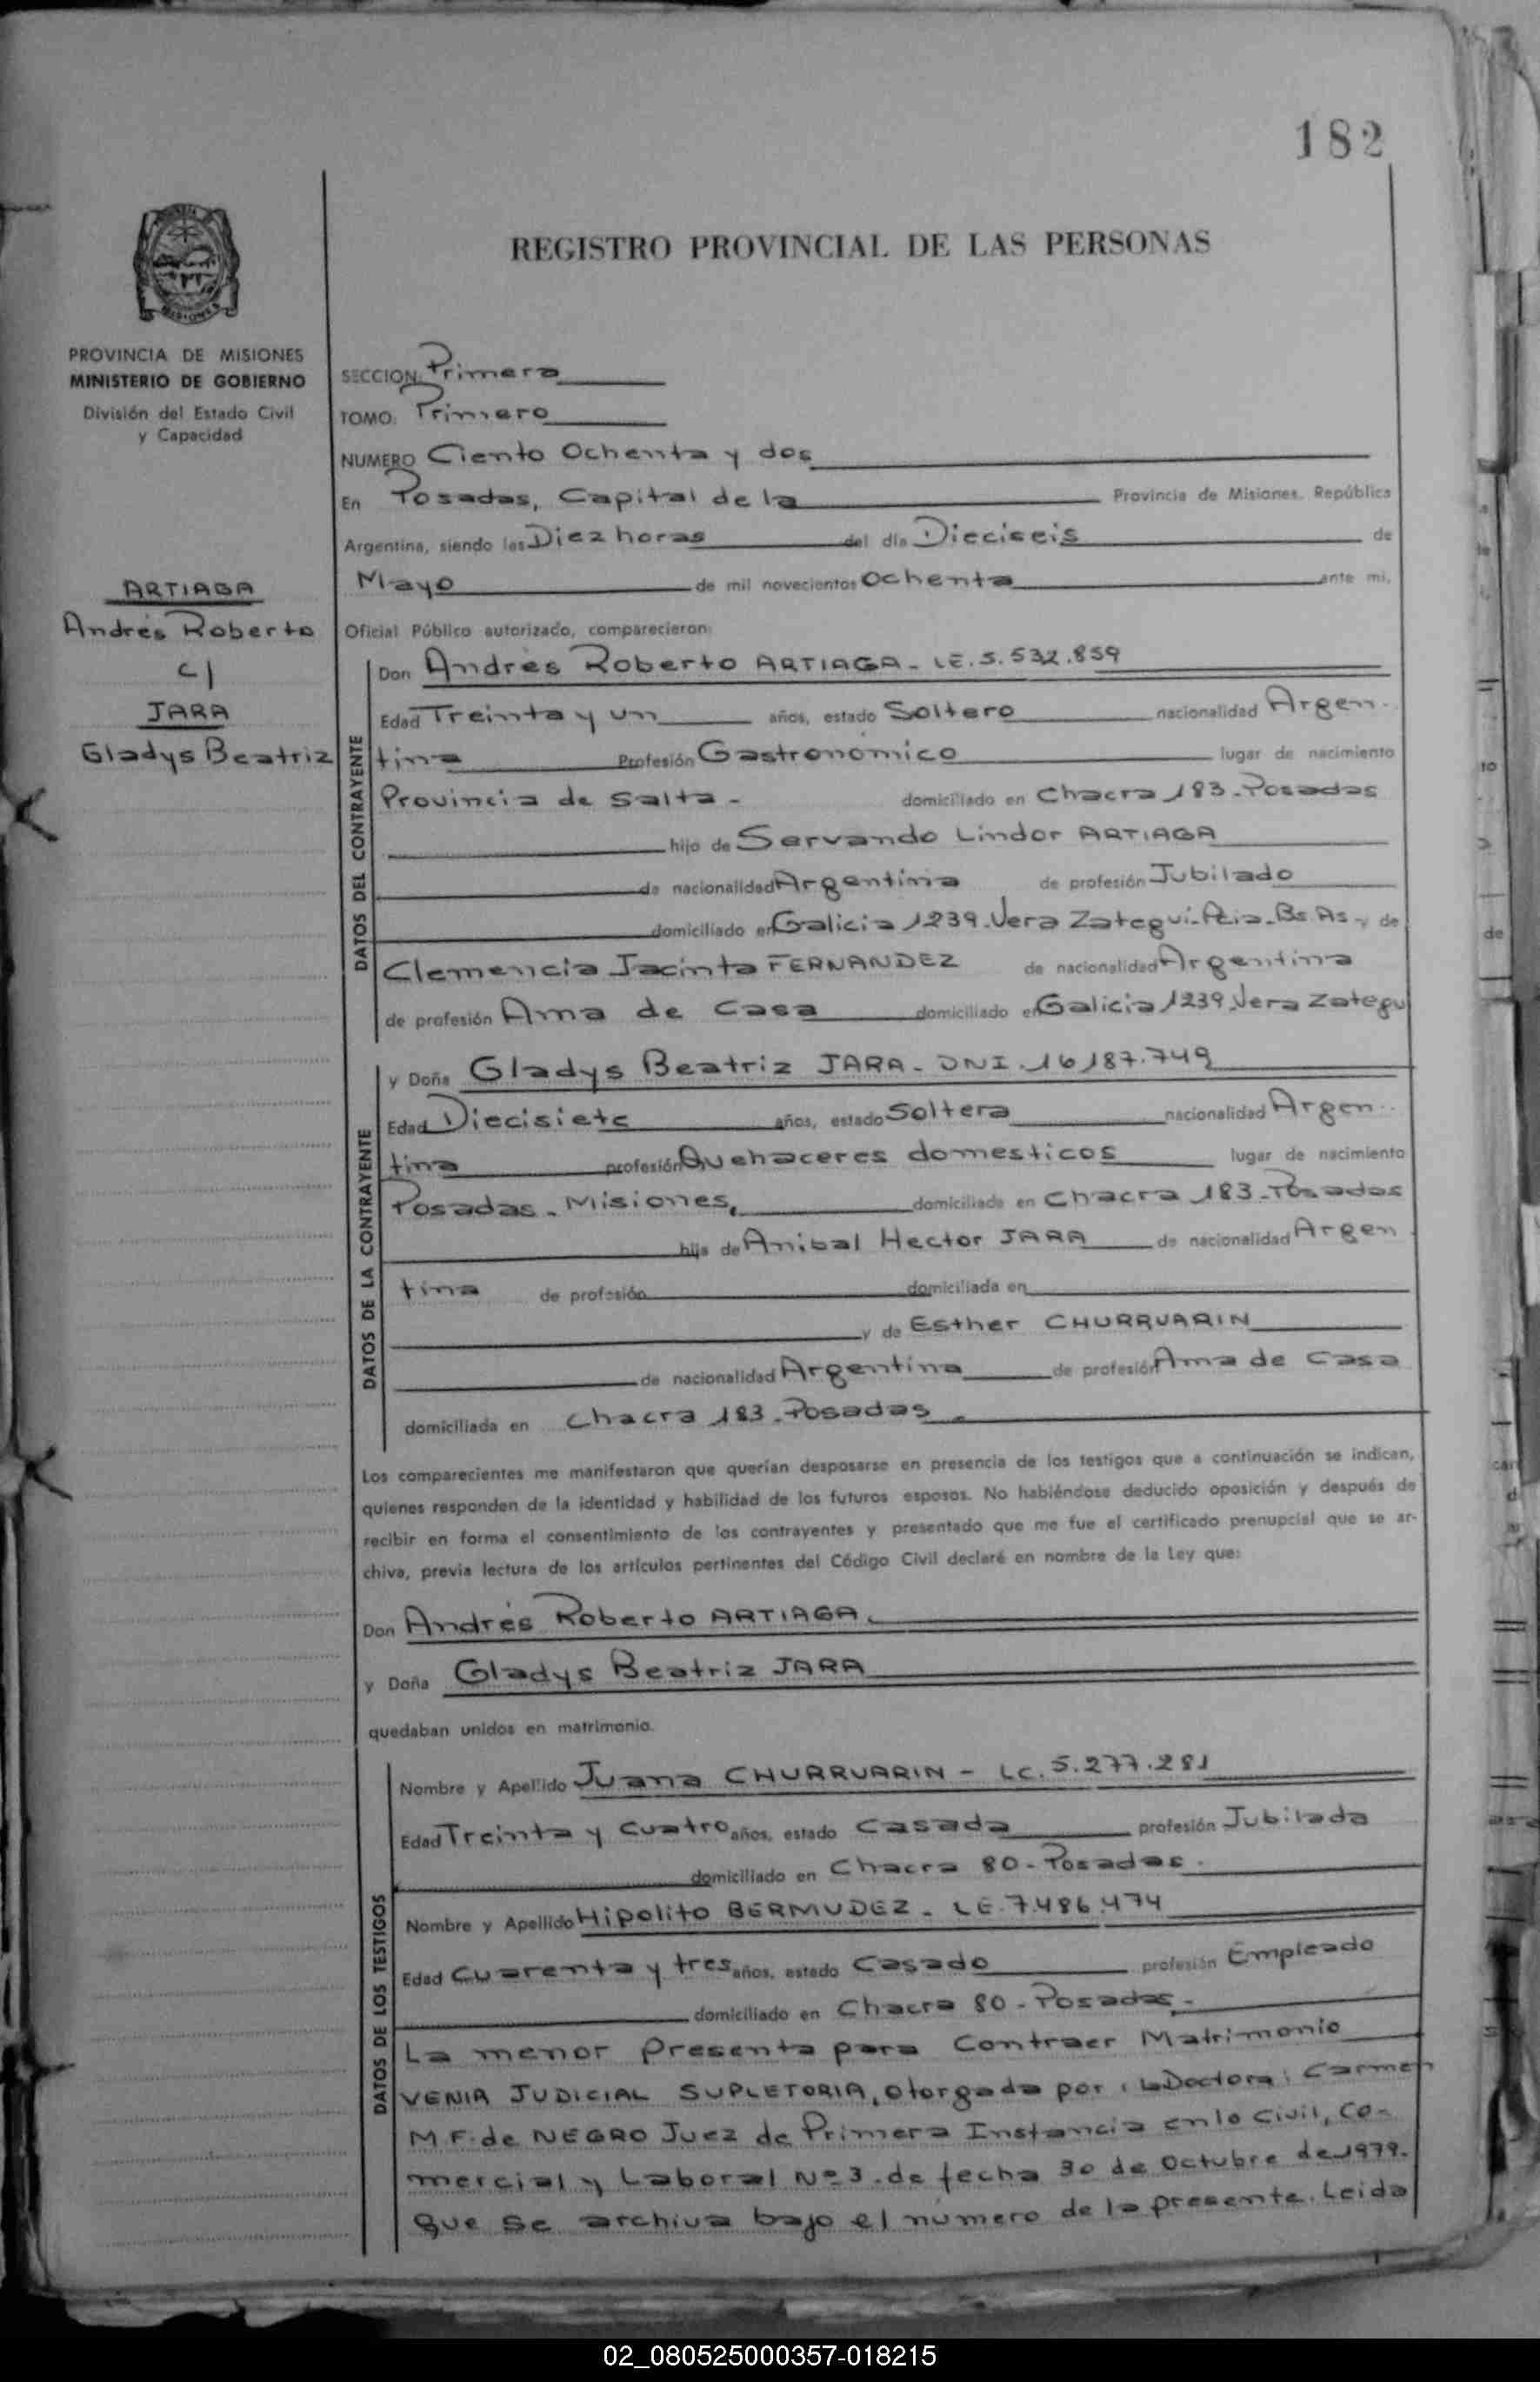 182
REGISTRO PROVINCIAL DE LAS PERSONAS
MISIONES
PROVINCIA DE MISIONES
MINISTERIO DE GOBIERNO
División del Estado Civil
y Capacidad
ARTIAGA
Andrés Roberto
c/
JARA
Gladys Beatriz
SECCION: Primera
TOMO: Primero
NUMERO Ciento Ochenta y dos
En Posadas, Capital de la Provincia de Misiones, República
Argentina, siendo las Diez horas del día Dieciseis de
Mayo de mil novecientos Ochenta ante mi,
Oficial Público autorizado, comparecieron:
DATOS DEL CONTRAYENTE
Don Andrés Roberto ARTIAGA - LE. 5.532.859
Edad Treinta y un años, estado Soltero nacionalidad Argen-
tina Profesión Gastronómico lugar de nacimiento
Provincia de Salta - domiciliado en Chacra 183-Posadas
hijo de Servando Lindor ARTIAGA
de nacionalidad Argentina de profesión Jubilado
domiciliado en Galicia 1239-Vera Zategui-Pcia-Bs.As- y de
Clemencia Jacinta FERNANDEZ de nacionalidad Argentina
de profesión Ama de Casa domiciliado en Galicia 1239, Vera Zategui
DATOS DE LA CONTRAYENTE
y Doña Gladys Beatriz JARA - DNI. 16,187.749
Edad Diecisiete años, estado Soltera nacionalidad Argen-
tina profesión Quehaceres domesticos lugar de nacimiento
Posadas - Misiones, domiciliada en Chacra 183-Posadas
hija de Anibal Hector JARA de nacionalidad Argen
tina de profesión domiciliada en
y de Esther CHURRUARIN
de nacionalidad Argentina de profesión Ama de Casa
domiciliada en Chacra 183-Posadas -
Los comparecientes me manifestaron que querían desposarse en presencia de los testigos que a continuación se indican,
quienes responden de la identidad y habilidad de los futuros esposos. No habiéndose deducido oposición y después de
recibir en forma el consentimiento de los contrayentes y presentado que me fue el certificado prenupcial que se ar-
chiva, previa lectura de los artículos pertinentes del Código Civil declaré en nombre de la Ley que:
Don Andrés Roberto ARTIAGA.
y Doña Gladys Beatriz JARA
quedaban unidos en matrimonio.
DATOS DE LOS TESTIGOS
Nombre y Apellido Juana CHURRUARIN - LC. 5.277.281
Edad Treinta y Cuatro años, estado Casada profesión Jubilada
domiciliado en Chacra 80-Posadas.
Nombre y Apellido Hipolito BERMUDEZ - LE. 7.486.474
Edad Cuarenta y tres años, estado Casado profesión Empleado
domiciliado en Chacra 80-Posadas.-
La menor presenta para Contraer Matrimonio
VENIA JUDICIAL SUPLETORIA, otorgada por la Doctora: Carmen
M.F. de NEGRO Juez de Primera Instancia en lo Civil, Co-
mercial y Laboral Nº 3. de fecha 30 de Octubre de 1979.
Que se archiva bajo el número de la presente. Leida
02_080525000357-018215